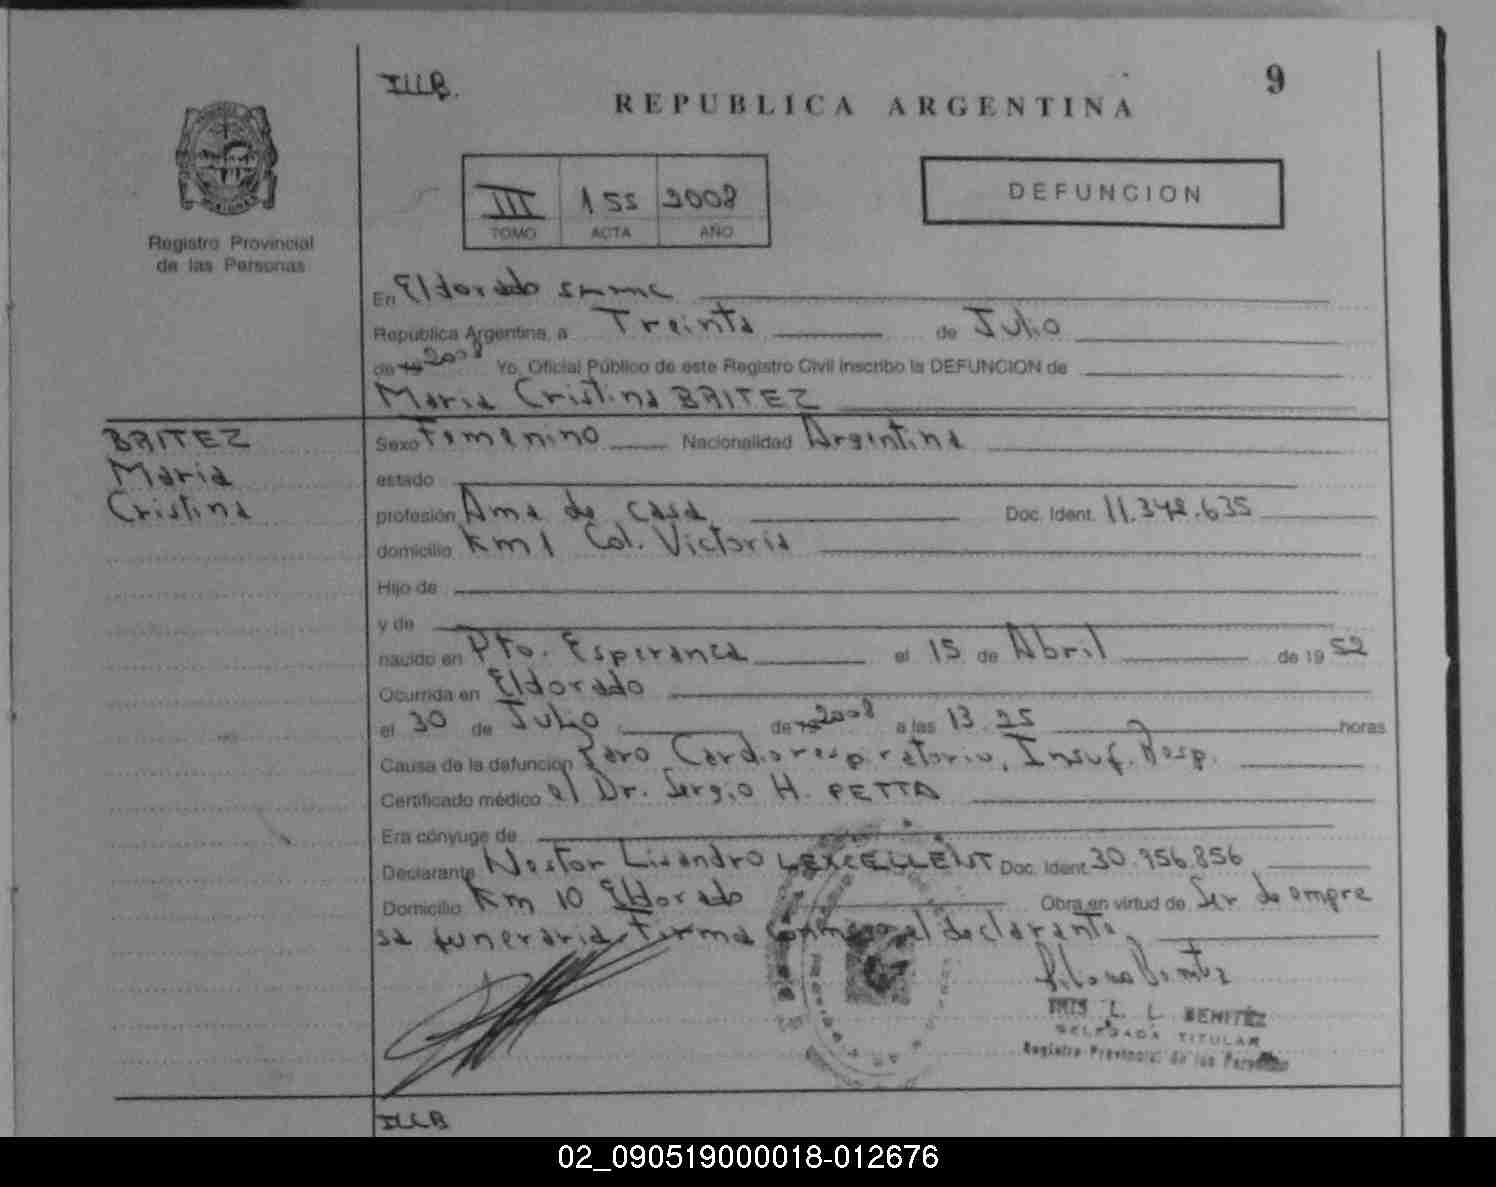 ILLB.
9
REPUBLICA ARGENTINA
III 155 2008
TOMO ACTA AÑO
DEFUNCION
Registro Provincial
de las Personas
En Eldorado
República Argentina, a Treinta de Julio
de 19 2008 Yo, Oficial Público de este Registro Civil inscribo la DEFUNCION de
Maria Cristina BRITEZ
BRITEZ
Maria
Cristina
Sexo Femenino Nacionalidad Argentina
estado
profesión Ama de casa Doc. Ident. 11.348.635
domicilio Km 1 Col. Victoria
Hijo de
y de
nacido en Pto. Esperanza el 15 de Abril de 19 52
Ocurrida en Eldorado
el 30 de Julio de 19 2008 a las 13.25 horas
Causa de la defunción Paro Cardiorespiratorio, Insuf. Resp.
Certificado médico el Dr. Sergio H. PETTA
Era cónyuge de
Declarante Nestor Lisandro LEXCELLENT Doc. Ident. 30.956.856
Domicilio Km 10 Eldorado Obra en virtud de Ser de empre
sa funeraria, Firma conmigo el declarante.
IRIS L. L. BENITEZ
DELEGADA TITULAR
Registro Provincial de las Personas
ILLB
02_090519000018-012676